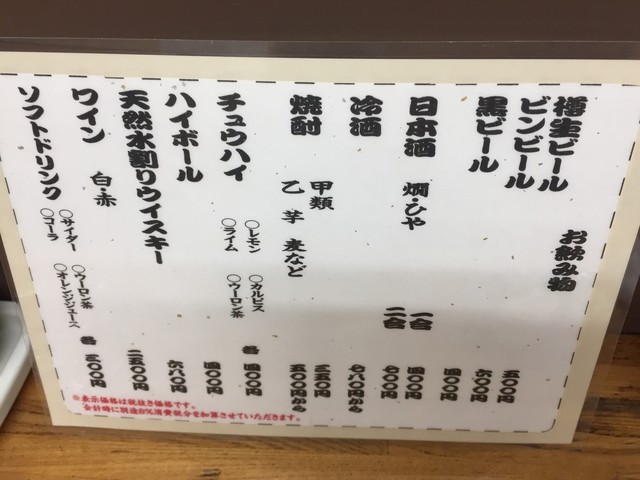 お飲み物
樽生ビール 五〇〇円
ビンビール 六〇〇円
黒ビール 四〇〇円
日本酒 燗・ひや 一合 四〇〇円
二合 七〇〇円
冷酒 七八〇円から
焼酎 甲類 三五〇円
乙 芋 麦など 五〇〇円から
チュウハイ ○レモン ○カルピス 各 四〇〇円
○ライム ○ウーロン茶
ハイボール 四〇〇円
天然水割りウイスキー 六八〇円
ワイン 白・赤 二五〇〇円
ソフトドリンク ○サイダー ○ウーロン茶 各 三〇〇円
○コーラ ○オレンジジュース
※表示価格は税抜き価格です。
会計時に別途8%消費税分を加算させていただきます。